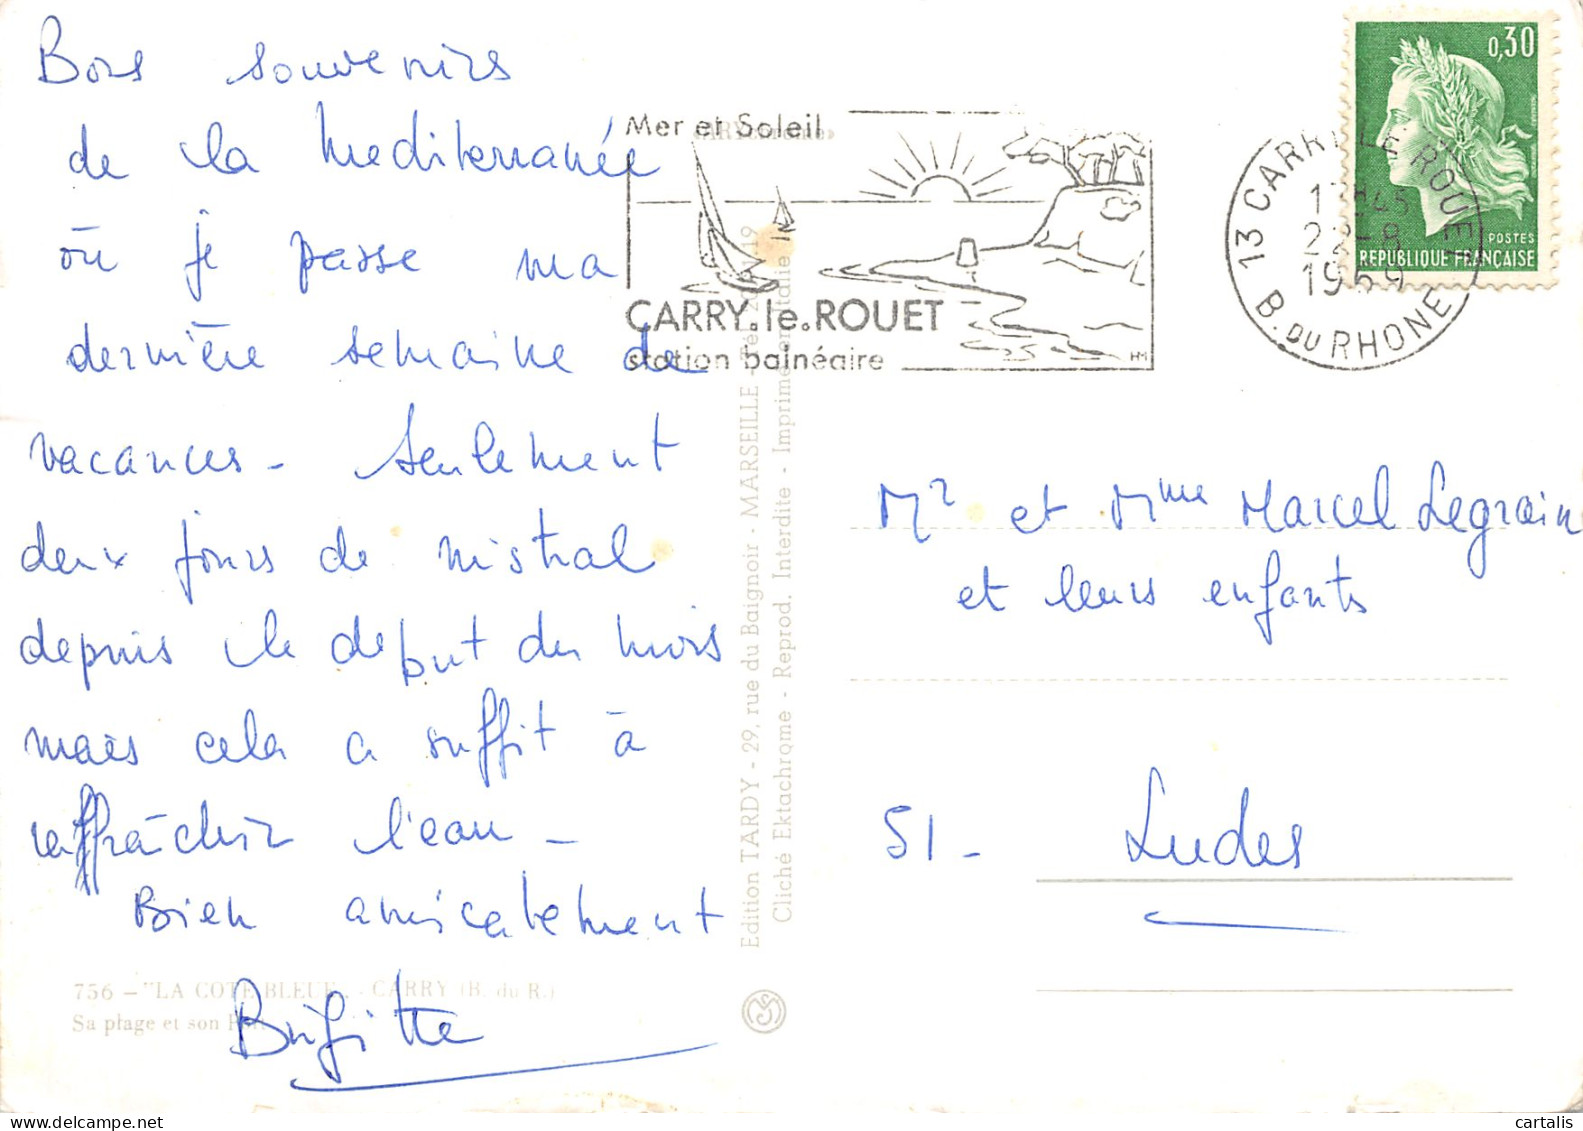 Bons souvenirs
de la mediterranée
où je passe ma
dernière semaine de
vacances - Seulement
deux jours de mistral
depuis le debut du mois
mais cela a suffit à
raffraîchir l'eau -
Bien amicalement
Brigitte
756 - "LA COTE BLEUE" - CARRY (B. du R.)
Sa plage et son
Edition TARDY - 29, rue du Baignoir - MARSEILLE - Tél. 20
Cliché Ektachrome - Reprod. Interdite - Imprimé en Italie
Mer et Soleil
CARRY.le.ROUET
station balnéaire
HM
13 CARRY LE ROUET
22-8
1969
B. DU RHONE
0,30
POSTES
REPUBLIQUE FRANÇAISE
Mr et Mme Marcel Legrain
et leurs enfants
51 - Ludes
cartalis